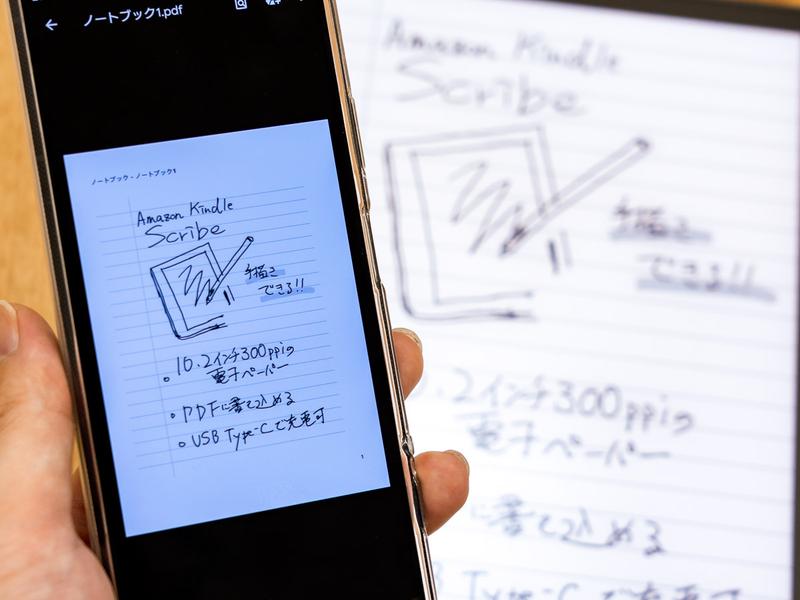 ノートブック1.pdf
ノートブック - ノートブック1
Amazon Kindle
Scribe
手描き
できる!!
10.2インチ300ppiの
電子ペーパー
PDFに書き込める
USB Type-Cで充電可
1
Amazon Kindle
Scribe
手描き
できる!!
.2インチ300ppiの
電子ペーパー
に書き込める
Type-Cで充電可